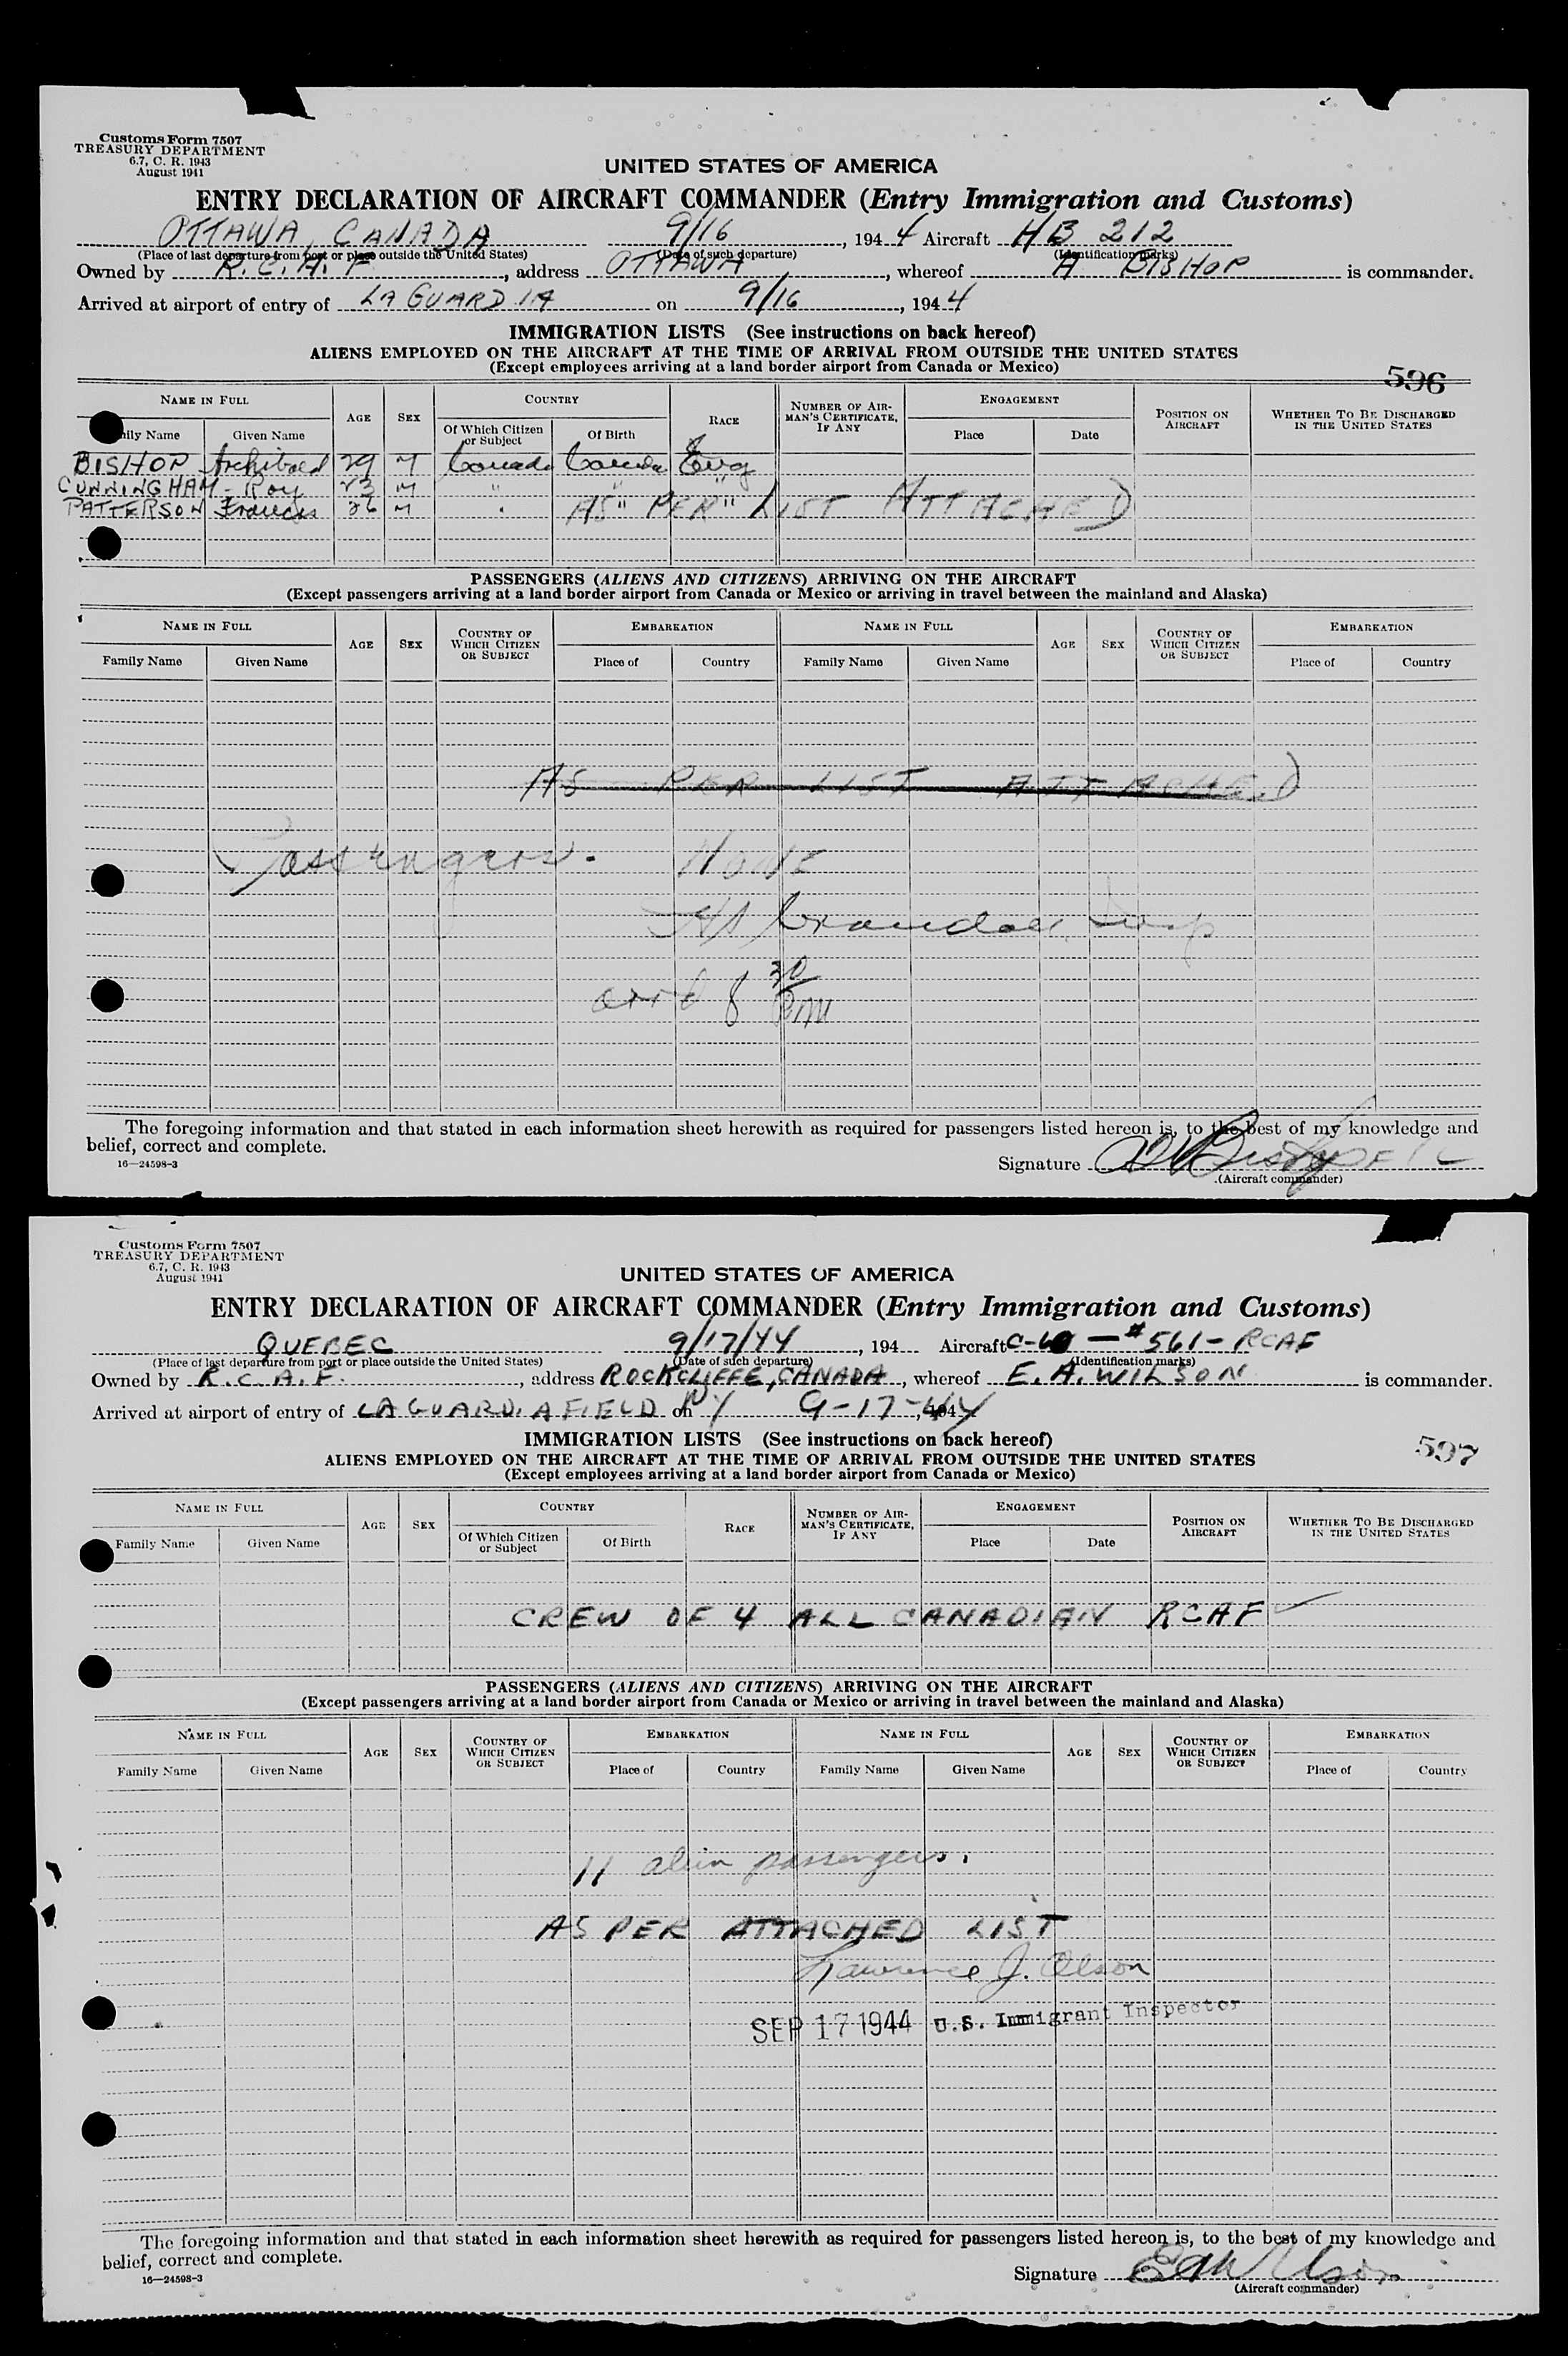 Customs Form 7507
TREASURY DEPARTMENT
6.7, C. R. 1943
August 1941
UNITED STATES OF AMERICA
ENTRY DECLARATION OF AIRCRAFT COMMANDER (Entry Immigration and Customs)
OTTAWA, CANADA 9/16, 1944 Aircraft HB 212
(Place of last departure from port or place outside the United States) (Date of such departure) (Identification marks)
Owned by R.C.A.F, address OTTAWA, whereof A BISHOP is commander.
Arrived at airport of entry of LA GUARDIA on 9/16, 1944
IMMIGRATION LISTS (See instructions on back hereof)
ALIENS EMPLOYED ON THE AIRCRAFT AT THE TIME OF ARRIVAL FROM OUTSIDE THE UNITED STATES
(Except employees arriving at a land border airport from Canada or Mexico)
596
NAME IN FULL AGE SEX COUNTRY RACE NUMBER OF AIRMAN'S CERTIFICATE, IF ANY ENGAGEMENT POSITION ON AIRCRAFT WHETHER TO BE DISCHARGED IN THE UNITED STATES
ily Name Given Name Of Which Citizen or Subject Of Birth Place Date
BISHOP Archibald 29 M Canada Canada Eng
CUNNINGHAM - Roy 23 M " " "
PATTERSON Francis 26 M " " " AS PER LIST ATTACHED
PASSENGERS (ALIENS AND CITIZENS) ARRIVING ON THE AIRCRAFT
(Except passengers arriving at a land border airport from Canada or Mexico or arriving in travel between the mainland and Alaska)
NAME IN FULL AGE SEX COUNTRY OF WHICH CITIZEN OR SUBJECT EMBARKATION NAME IN FULL AGE SEX COUNTRY OF WHICH CITIZEN OR SUBJECT EMBARKATION
Family Name Given Name Place of Country Family Name Given Name Place of Country
AS PER LIST ATTACHED
Passengers. NONE
Crandall Insp
arr'd 8 30 PM
The foregoing information and that stated in each information sheet herewith as required for passengers listed hereon is, to the best of my knowledge and
belief, correct and complete.
16—24598-3
Signature
(Aircraft commander)
Customs Form 7507
TREASURY DEPARTMENT
6.7, C. R. 1943
August 1941
UNITED STATES OF AMERICA
ENTRY DECLARATION OF AIRCRAFT COMMANDER (Entry Immigration and Customs)
QUEBEC 9/17/44, 194 Aircraft - #561 - RCAF
(Place of last departure from port or place outside the United States) (Date of such departure) (Identification marks)
Owned by R.C.A.F., address ROCKCLIFFE, CANADA, whereof E. A. WILSON is commander.
Arrived at airport of entry of LA GUARDIA FIELD NY on 9-17-44
IMMIGRATION LISTS (See instructions on back hereof)
597
ALIENS EMPLOYED ON THE AIRCRAFT AT THE TIME OF ARRIVAL FROM OUTSIDE THE UNITED STATES
(Except employees arriving at a land border airport from Canada or Mexico)
NAME IN FULL AGE SEX COUNTRY RACE NUMBER OF AIRMAN'S CERTIFICATE, IF ANY ENGAGEMENT POSITION ON AIRCRAFT WHETHER TO BE DISCHARGED IN THE UNITED STATES
Family Name Given Name Of Which Citizen or Subject Of Birth Place Date
CREW OF 4 ALL CANADIAN RCAF
PASSENGERS (ALIENS AND CITIZENS) ARRIVING ON THE AIRCRAFT
(Except passengers arriving at a land border airport from Canada or Mexico or arriving in travel between the mainland and Alaska)
NAME IN FULL AGE SEX COUNTRY OF WHICH CITIZEN OR SUBJECT EMBARKATION NAME IN FULL AGE SEX COUNTRY OF WHICH CITIZEN OR SUBJECT EMBARKATION
Family Name Given Name Place of Country Family Name Given Name Place of Country
11 alien passengers.
AS PER ATTACHED LIST
Lawrence J. Olson
SEP 17 1944 U.S. Immigrant Inspector
The foregoing information and that stated in each information sheet herewith as required for passengers listed hereon is, to the best of my knowledge and
belief, correct and complete.
16—24598-3
Signature EA Wilson
(Aircraft commander)